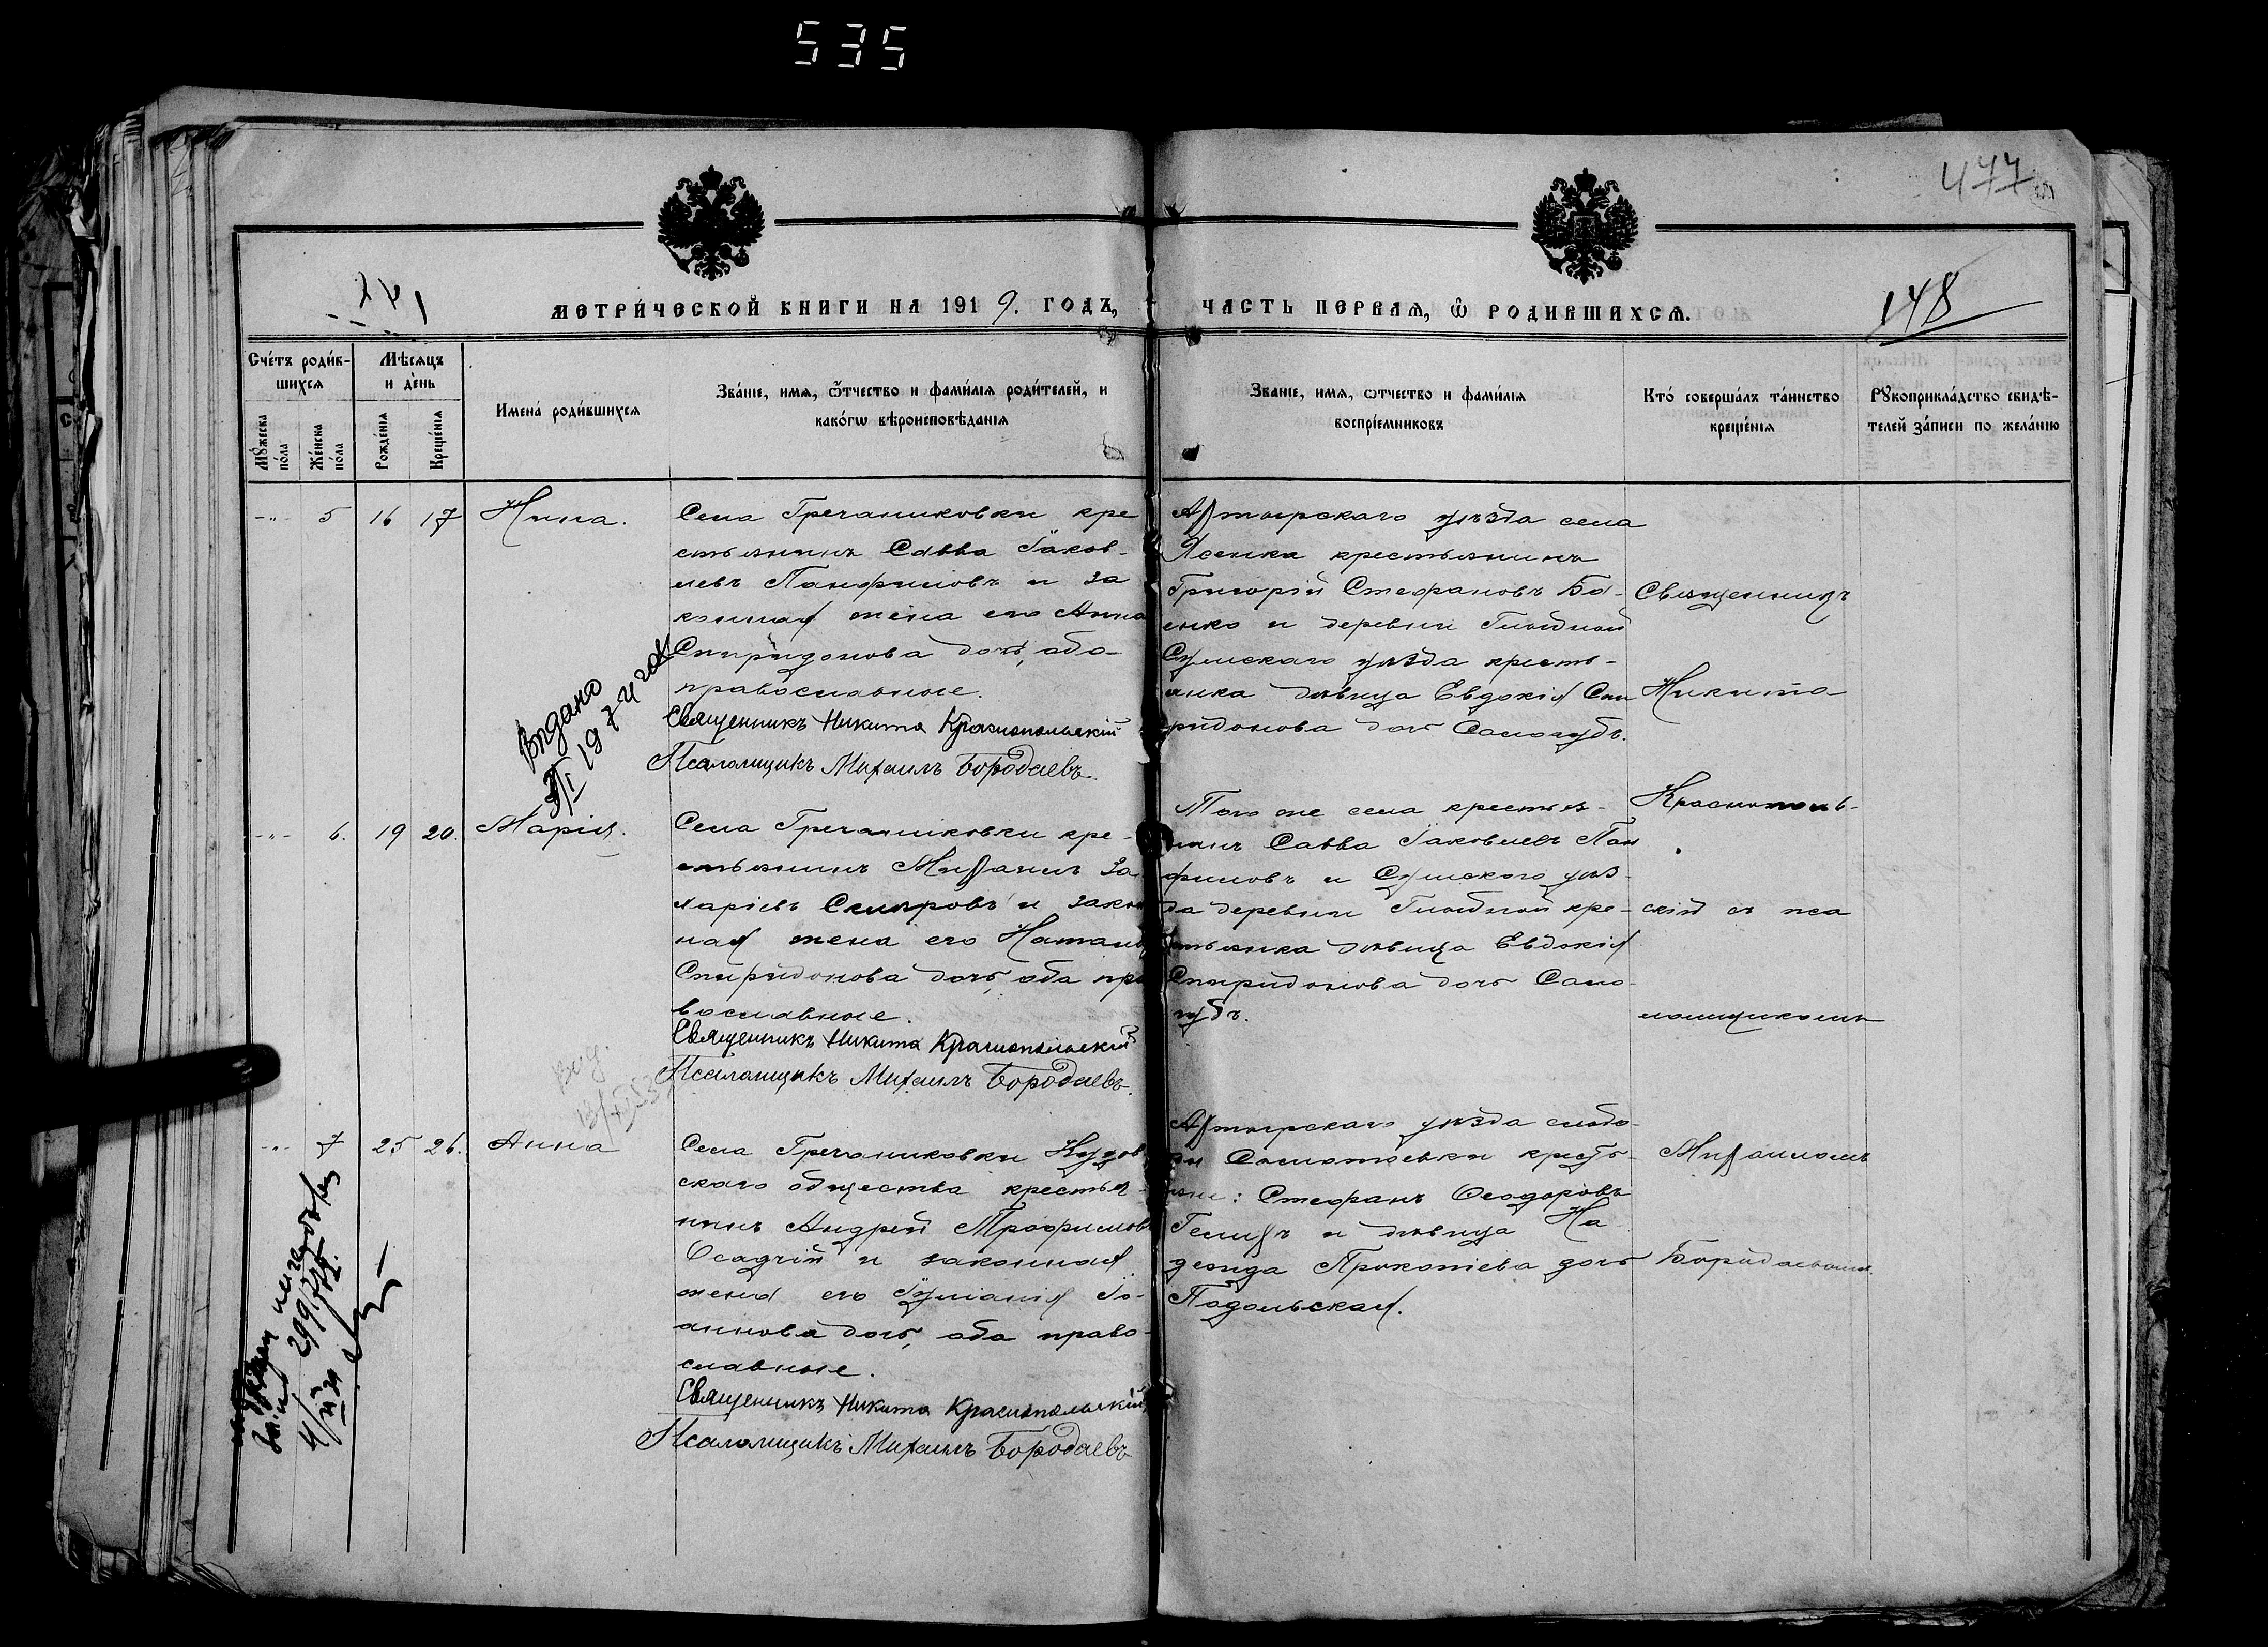 535
477
148
МЕТРИЧЕСКОЙ КНИГИ НА 1919. ГОДЪ,
ЧАСТЬ ПЕРВАЯ, Ѡ РОДИВШИХСЯ.
Счетъ родив-
шихся
Мѣсяцъ
и день
Мꙋжеска
пола
Женска
пола
Рожденія
Крещенія
Имена родившихся
Званіе, имя, ѿчество и фамилія родителей, и
какогѡ вѣроисповѣданія
Званіе, имя, ѿчество и фамилія
воспріемниковъ
Кто совершалъ таинство
крещенія
Рꙋкоприкладство свидѣ-
телей записи по желанію
-"- 5 16 17 Нина.
Села Гречаниковки кре
стьянинъ Савва Іаков-
левъ Панфиловъ и за
конная жена его Анна
Спиридонова дочь, оба
православные.
Священникъ Никита Краснопольскій
Псаломщикъ Михаилъ Бородаевъ.
Ахтырскаго уѣзда села
Ясенка крестьянинъ
Григорій Стефановъ Ба-
енко и деревни
Сумскаго уѣзда кресть-
янка дѣвица Евдокія Спи
ридонова дочь Самогубъ.
Священникъ
Никита
Краснополь-
скій съ пса
ломщикомъ
Михаиломъ
Бородаевымъ
Видано
-"- 6. 19 20. Марія.
Села Гречаниковки кре-
стьянинъ Михаилъ За-
харіевъ и закон
ная жена его Наталія
Спиридонова дочь, оба пра
вославные.
Священникъ Никита Краснопольскій
Псаломщикъ Михаилъ Бородаевъ.
Того же села крестья-
нинъ Савва Іаковлевъ Пан
филовъ и Сумского уѣз-
да деревни кре-
стьянка дѣвица Евдокія
Спиридонова дочь Само-
губъ.
-"- 7 25 26. Анна
Села Гречаниковки
скаго общества крестья-
нинъ Андрей Трофимовъ
Осадчій и законная
жена его Іуліанія Іо-
аннова дочь, оба право-
славные.
Священникъ Никита Краснопольскій
Псаломщикъ Михаилъ Бородаевъ
Ахтырскаго уѣзда слобо-
ды кресть-
яне: Стефанъ Ѳеодоровъ
и дѣвица На
дежда Прокопіева дочь
Подольская.